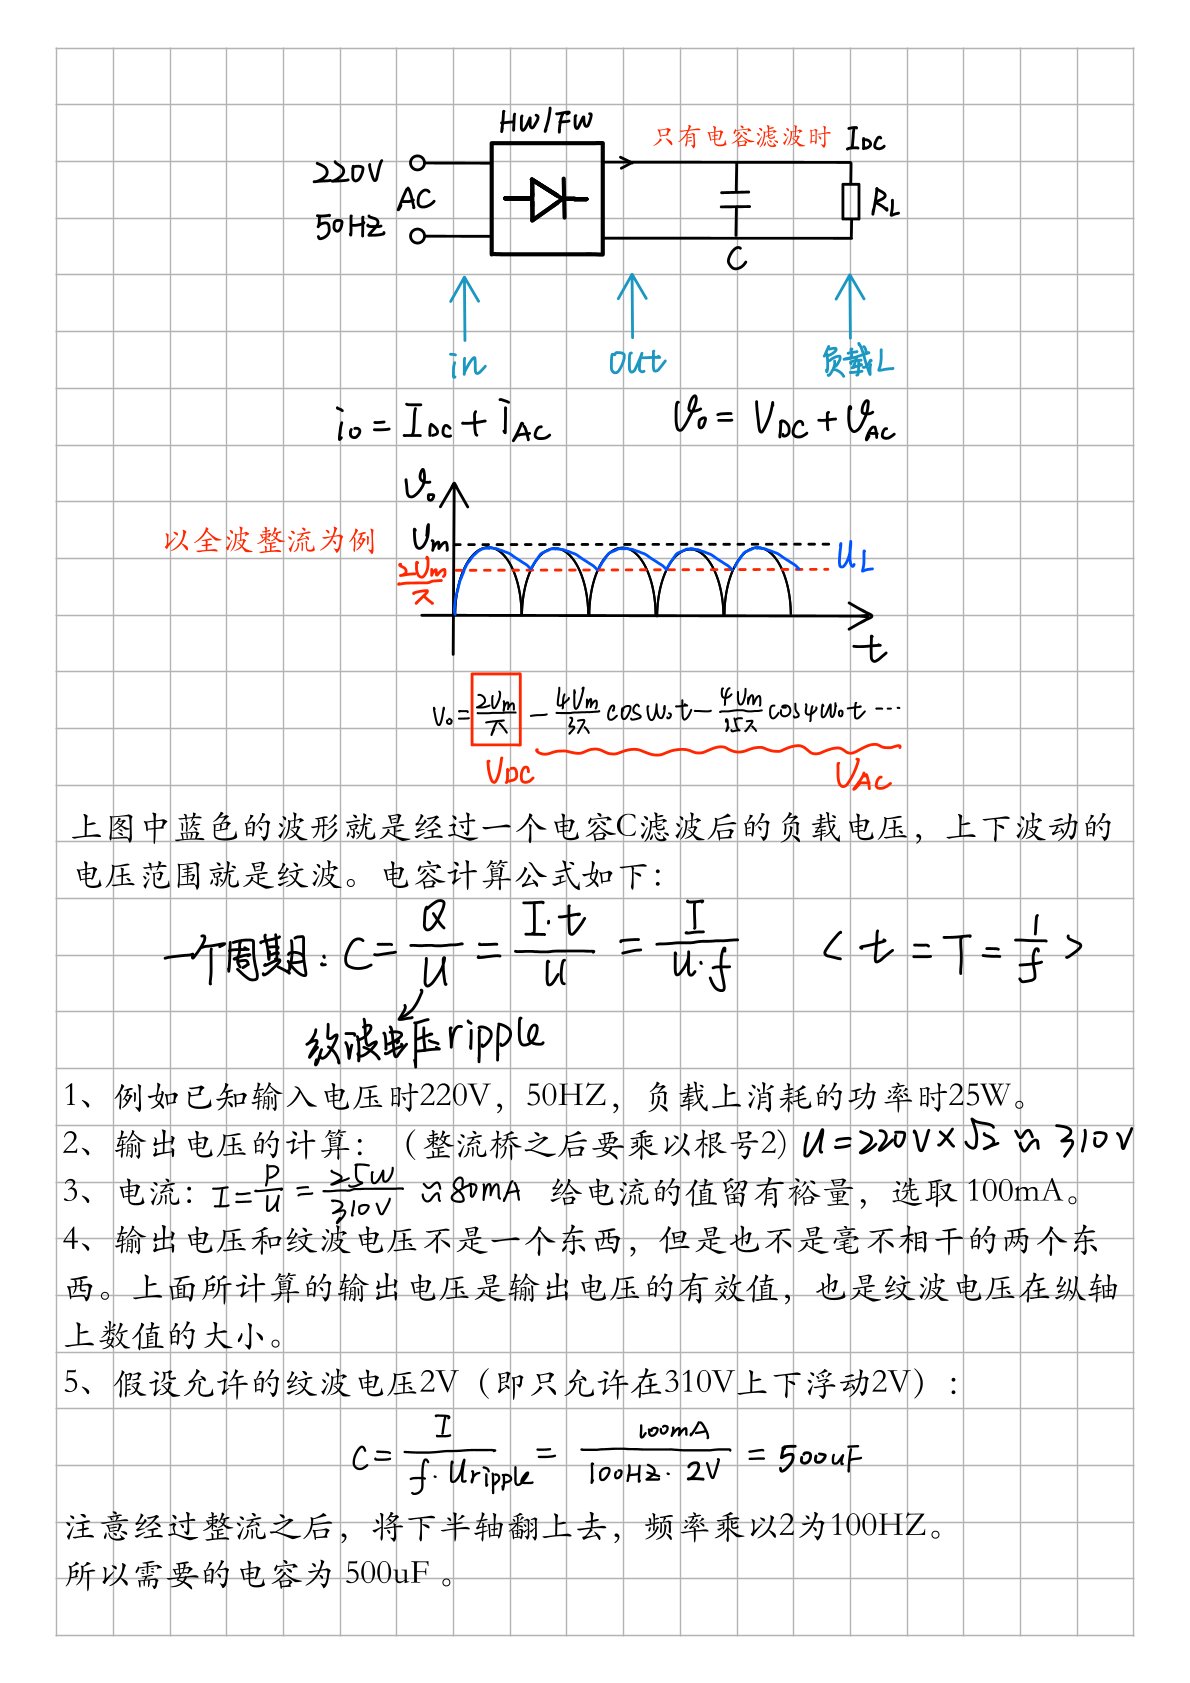 HW/FW
只有电容滤波时 IDC
220V
AC
50HZ
RL
C
in out 负载L
io = IDC + iAC
vo = VDC + vAC
vo
以全波整流为例
Um
2Um/π
UL
t
Vo = 2Um/π - 4Um/3π cosωot - 4Um/15π cos4ωot ···
VDC
VAC
上图中蓝色的波形就是经过一个电容C滤波后的负载电压，上下波动的
电压范围就是纹波。电容计算公式如下：
一个周期：C = Q/U = I·t/U = I/U·f < t = T = 1/f >
纹波电压ripple
1、例如已知输入电压时220V，50HZ，负载上消耗的功率时25W。
2、输出电压的计算：（整流桥之后要乘以根号2）U = 220V × √2 ≈ 310V
3、电流：I = P/U = 25W/310V ≈ 80mA 给电流的值留有裕量，选取 100mA。
4、输出电压和纹波电压不是一个东西，但是也不是毫不相干的两个东
西。上面所计算的输出电压是输出电压的有效值，也是纹波电压在纵轴
上数值的大小。
5、假设允许的纹波电压2V（即只允许在310V上下浮动2V）：
C = I/f·Uripple = 100mA/100HZ·2V = 500uF
注意经过整流之后，将下半轴翻上去，频率乘以2为100HZ。
所以需要的电容为 500uF 。